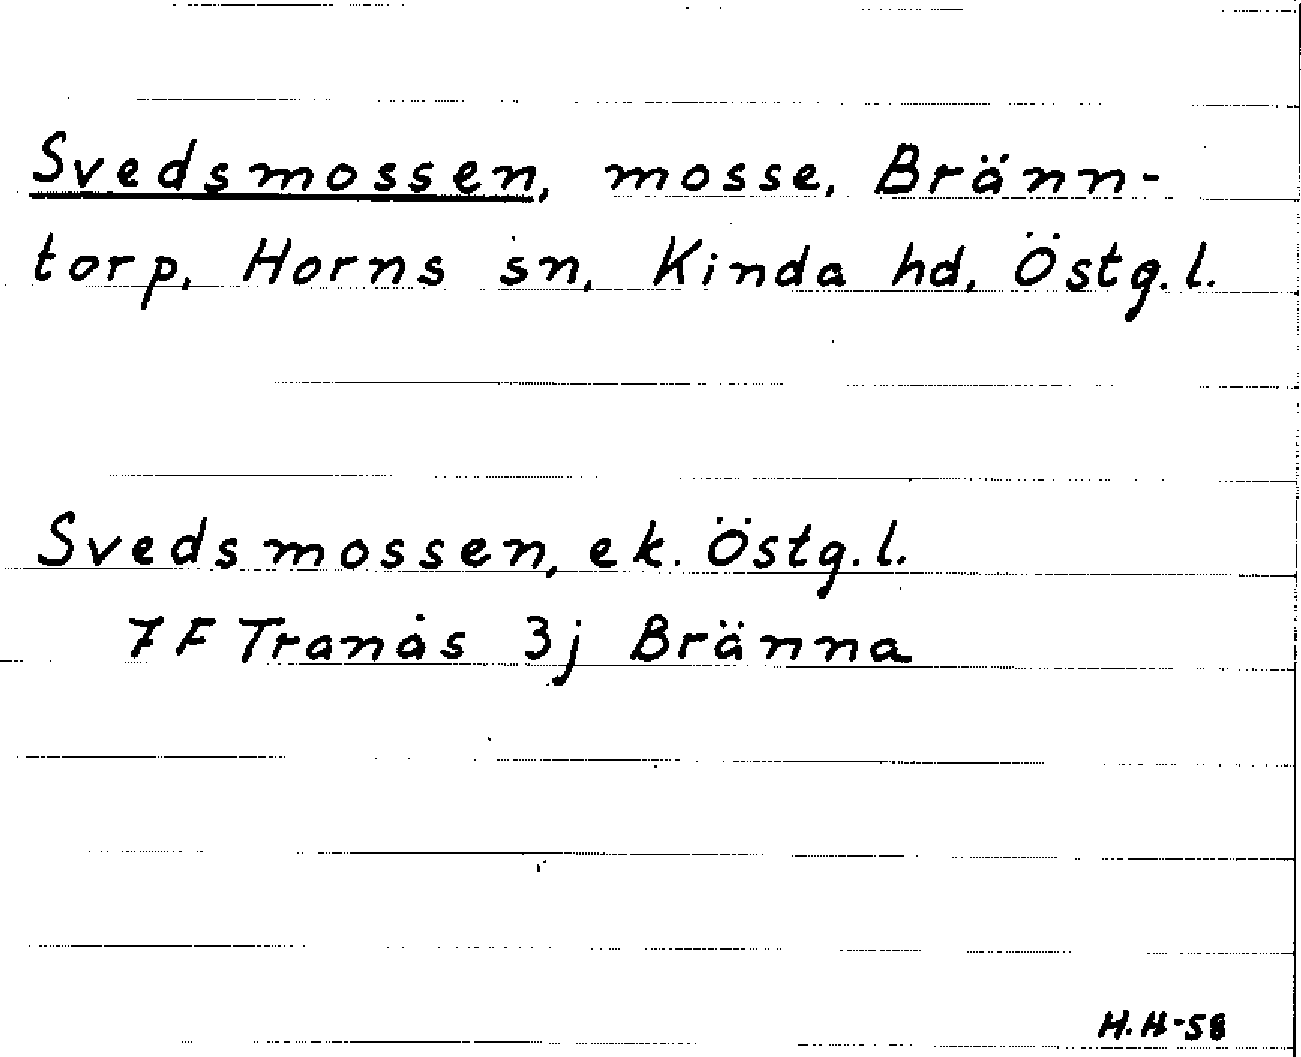 Svedsmossen, mosse, Bränn-
torp, Horns sn, Kinda hd, Östg.l.
Svedsmossen, ek. Östg.l.
7F Tranås 3j Bränna
H.H-58